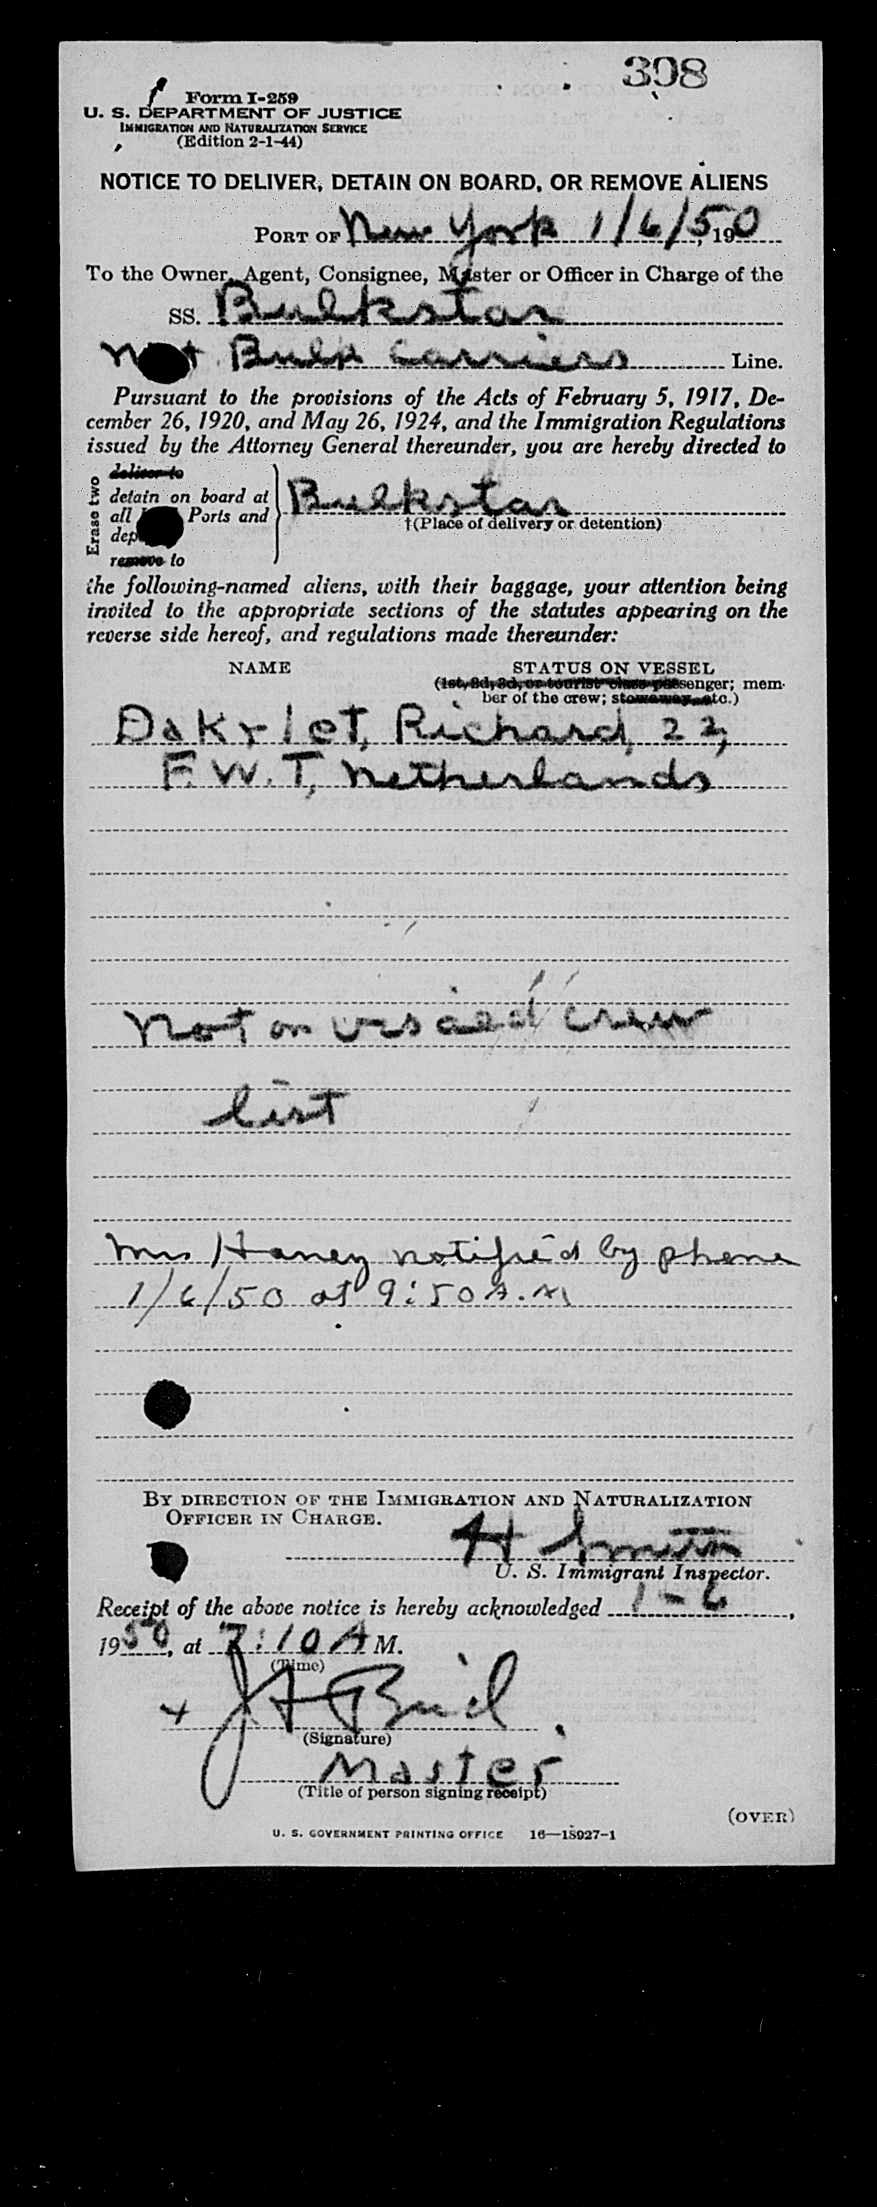 308
Form I-259
U. S. DEPARTMENT OF JUSTICE
IMMIGRATION AND NATURALIZATION SERVICE
(Edition 2-1-44)
NOTICE TO DELIVER, DETAIN ON BOARD, OR REMOVE ALIENS
PORT OF New York 1/6/50, 190
To the Owner, Agent, Consignee, Master or Officer in Charge of the
SS. Bulkstar
Bulk Carriers Line.
Pursuant to the provisions of the Acts of February 5, 1917, De-
cember 26, 1920, and May 26, 1924, and the Immigration Regulations
issued by the Attorney General thereunder, you are hereby directed to
Erase two
deliver to
detain on board at
all Ports and
remove to
Bulkstar
†(Place of delivery or detention)
the following-named aliens, with their baggage, your attention being
invited to the appropriate sections of the statutes appearing on the
reverse side hereof, and regulations made thereunder:
NAME STATUS ON VESSEL
(1st, 2d, 3d, or tourist class passenger; mem-
ber of the crew; stowaway, etc.)
Richard, 22,
F.W.T, Netherlands
Not on visaed crew
list
Mrs Haney notified by phone
1/6/50 at 9:50 A.M
BY DIRECTION OF THE IMMIGRATION AND NATURALIZATION
OFFICER IN CHARGE.
H Smith
U. S. Immigrant Inspector.
Receipt of the above notice is hereby acknowledged 1-6,
1950, at 7:10 A M.
(Time)
(Signature)
Master
(Title of person signing receipt)
(OVER)
U. S. GOVERNMENT PRINTING OFFICE 16—18927-1